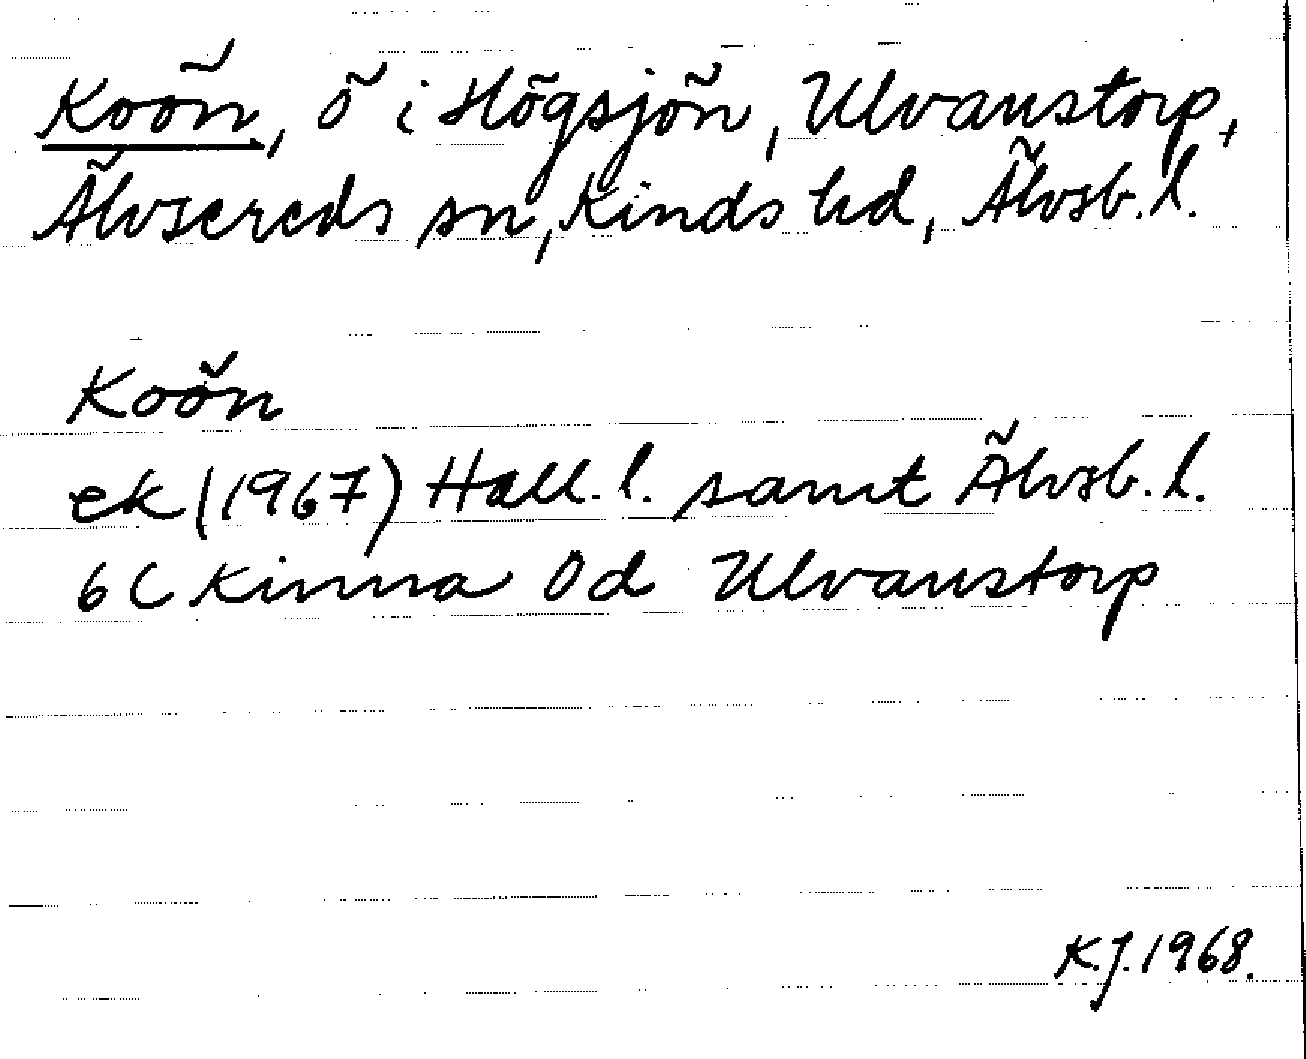 Koön, ö i Högsjön, Ulvanstorp,
Älvsereds sn, Kinds hd, Älvsb. l.
Koön
ek (1967) Hall. l. samt Älvsb. l.
6 C Kinna 0d Ulvanstorp
K.J. 1968.